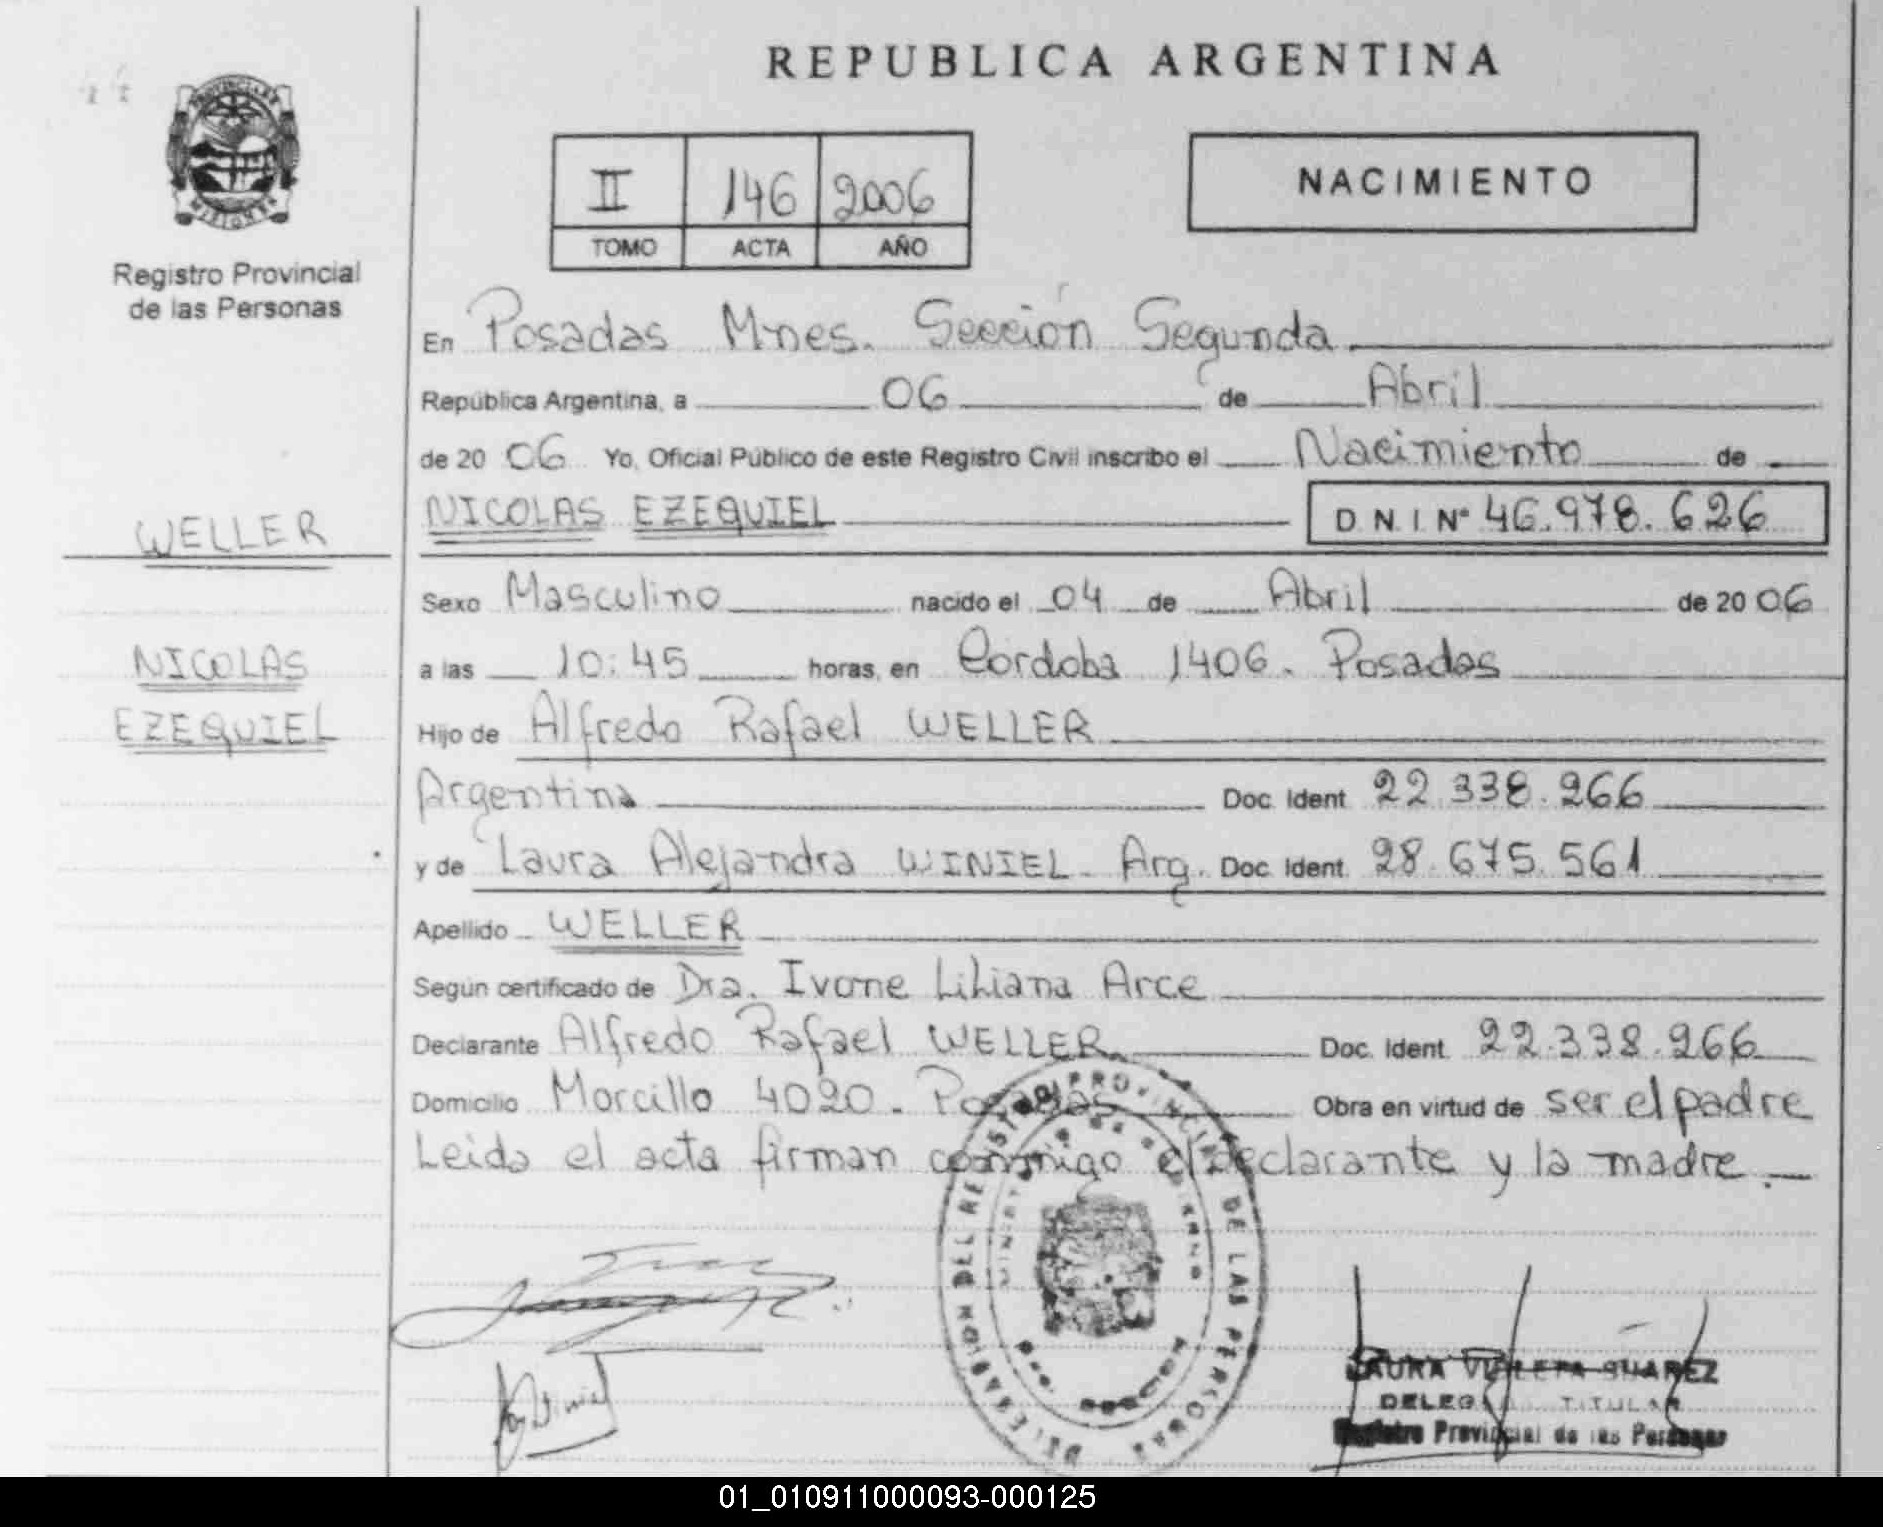 REPUBLICA ARGENTINA
PROVINCIA DE MISIONES
Registro Provincial
de las Personas
II 146 2006
TOMO ACTA AÑO
NACIMIENTO
En Posadas Mnes. Sección Segunda
República Argentina, a 06 de Abril
de 20 06 Yo, Oficial Público de este Registro Civil inscribo el Nacimiento de
NICOLAS EZEQUIEL D N I Nº 46.978.626
WELLER
NICOLAS
EZEQUIEL
Sexo Masculino nacido el 04 de Abril de 20 06
a las 10:45 horas, en Cordoba 1406. Posadas
Hijo de Alfredo Rafael WELLER
Argentina Doc. Ident. 22.338.266
y de Laura Alejandra WINIEL - Arg. Doc. Ident. 28.675.561
Apellido WELLER
Según certificado de Dra. Ivone Liliana Arce
Declarante Alfredo Rafael WELLER Doc. Ident. 22.338.266
Domicilio Morcillo 4020. Posadas Obra en virtud de ser el padre
Leida el acta firman conmigo el declarante y la madre.
DELEGACION DEL REGISTRO PROVINCIAL DE LAS PERSONAS
LAURA VIOLETA SUAREZ
DELEGADA TITULAR
Registro Provincial de las Personas
01_010911000093-000125